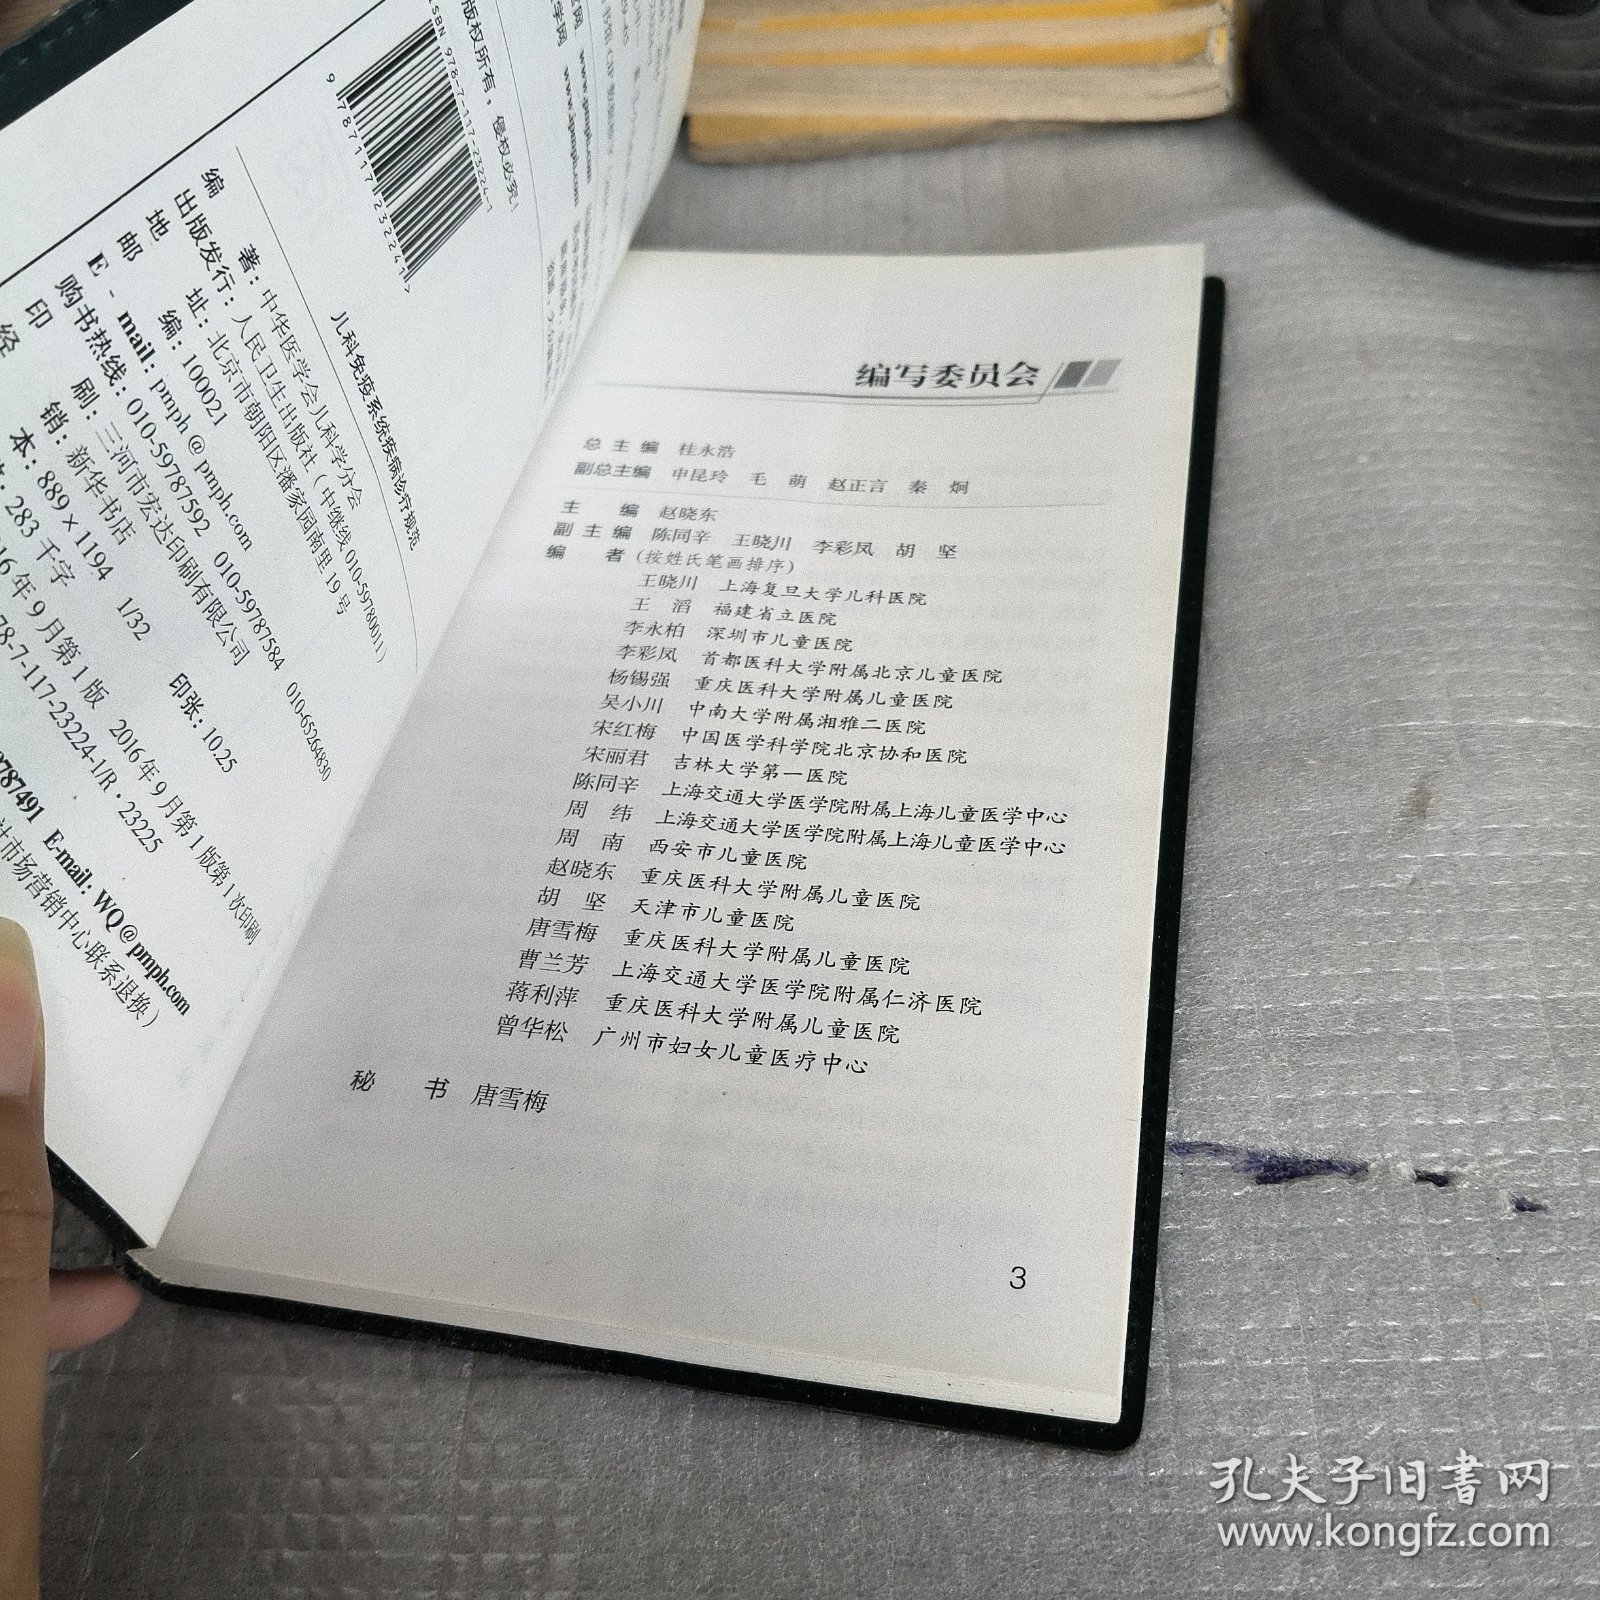 版权所有,侵权必究!
ISBN 978-7-117-23224-1
9 787117 232241
儿科免疫系统疾病诊疗规范
编 著:中华医学会儿科学分会
出版发行:人民卫生出版社(中继线 010-59780011)
地 址:北京市朝阳区潘家园南里 19 号
邮 编:100021
E - mail:pmph @ pmph.com
购书热线:010-59787592 010-59787584 010-65264830
印 刷:三河市宏达印刷有限公司
经 销:新华书店
本:889×1194 1/32 印张:10.25
283 千字
16 年 9 月第 1 版 2016 年 9 月第 1 版第 1 次印刷
78-7-117-23224-1/R·23225
9787491 E-mail:WQ @ pmph.com
社市场营销中心联系退换)
编写委员会
总主编 桂永浩
副总主编 申昆玲 毛 萌 赵正言 秦 炯
主 编 赵晓东
副主编 陈同辛 王晓川 李彩凤 胡 坚
编 者(按姓氏笔画排序)
王晓川 上海复旦大学儿科医院
王 滔 福建省立医院
李永柏 深圳市儿童医院
李彩凤 首都医科大学附属北京儿童医院
杨锡强 重庆医科大学附属儿童医院
吴小川 中南大学附属湘雅二医院
宋红梅 中国医学科学院北京协和医院
宋丽君 吉林大学第一医院
陈同辛 上海交通大学医学院附属上海儿童医学中心
周 纬 上海交通大学医学院附属上海儿童医学中心
周 南 西安市儿童医院
赵晓东 重庆医科大学附属儿童医院
胡 坚 天津市儿童医院
唐雪梅 重庆医科大学附属儿童医院
曹兰芳 上海交通大学医学院附属仁济医院
蒋利萍 重庆医科大学附属儿童医院
曾华松 广州市妇女儿童医疗中心
秘 书 唐雪梅
3
孔夫子旧书网
www.kongfz.com